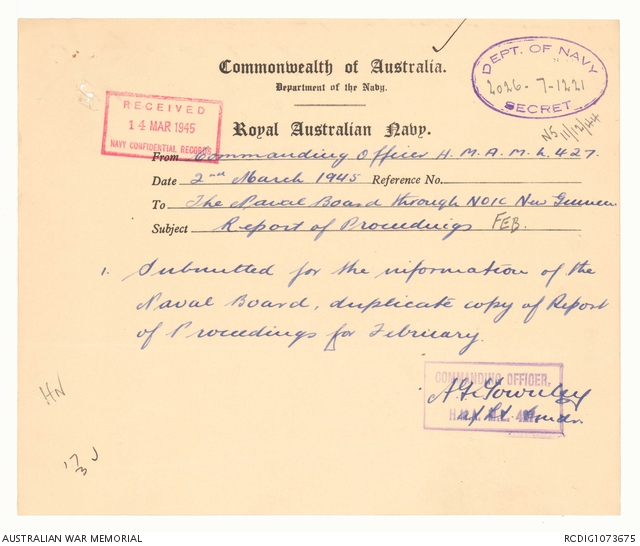 Commonwealth of Australia.
Department of the Navy.
Royal Australian Navy.
DEPT. OF NAVY
2026-7-1221
SECRET
NS 11/12/44
RECEIVED
14 MAR 1945
NAVY CONFIDENTIAL RECORDS
From Commanding Officer H.M.A.M.L. 427.
Date 2nd March 1945 Reference No.
To The Naval Board through NOIC New Guinea
Subject Report of Proceedings FEB.
1. Submitted for the information of the
Naval Board, duplicate copy of Report
of Proceedings for February.
COMMANDING OFFICER,
H.M.A. M.L. 427
A/Lt. Cmdr.
HN
AUSTRALIAN WAR MEMORIAL
RCDIG1073675